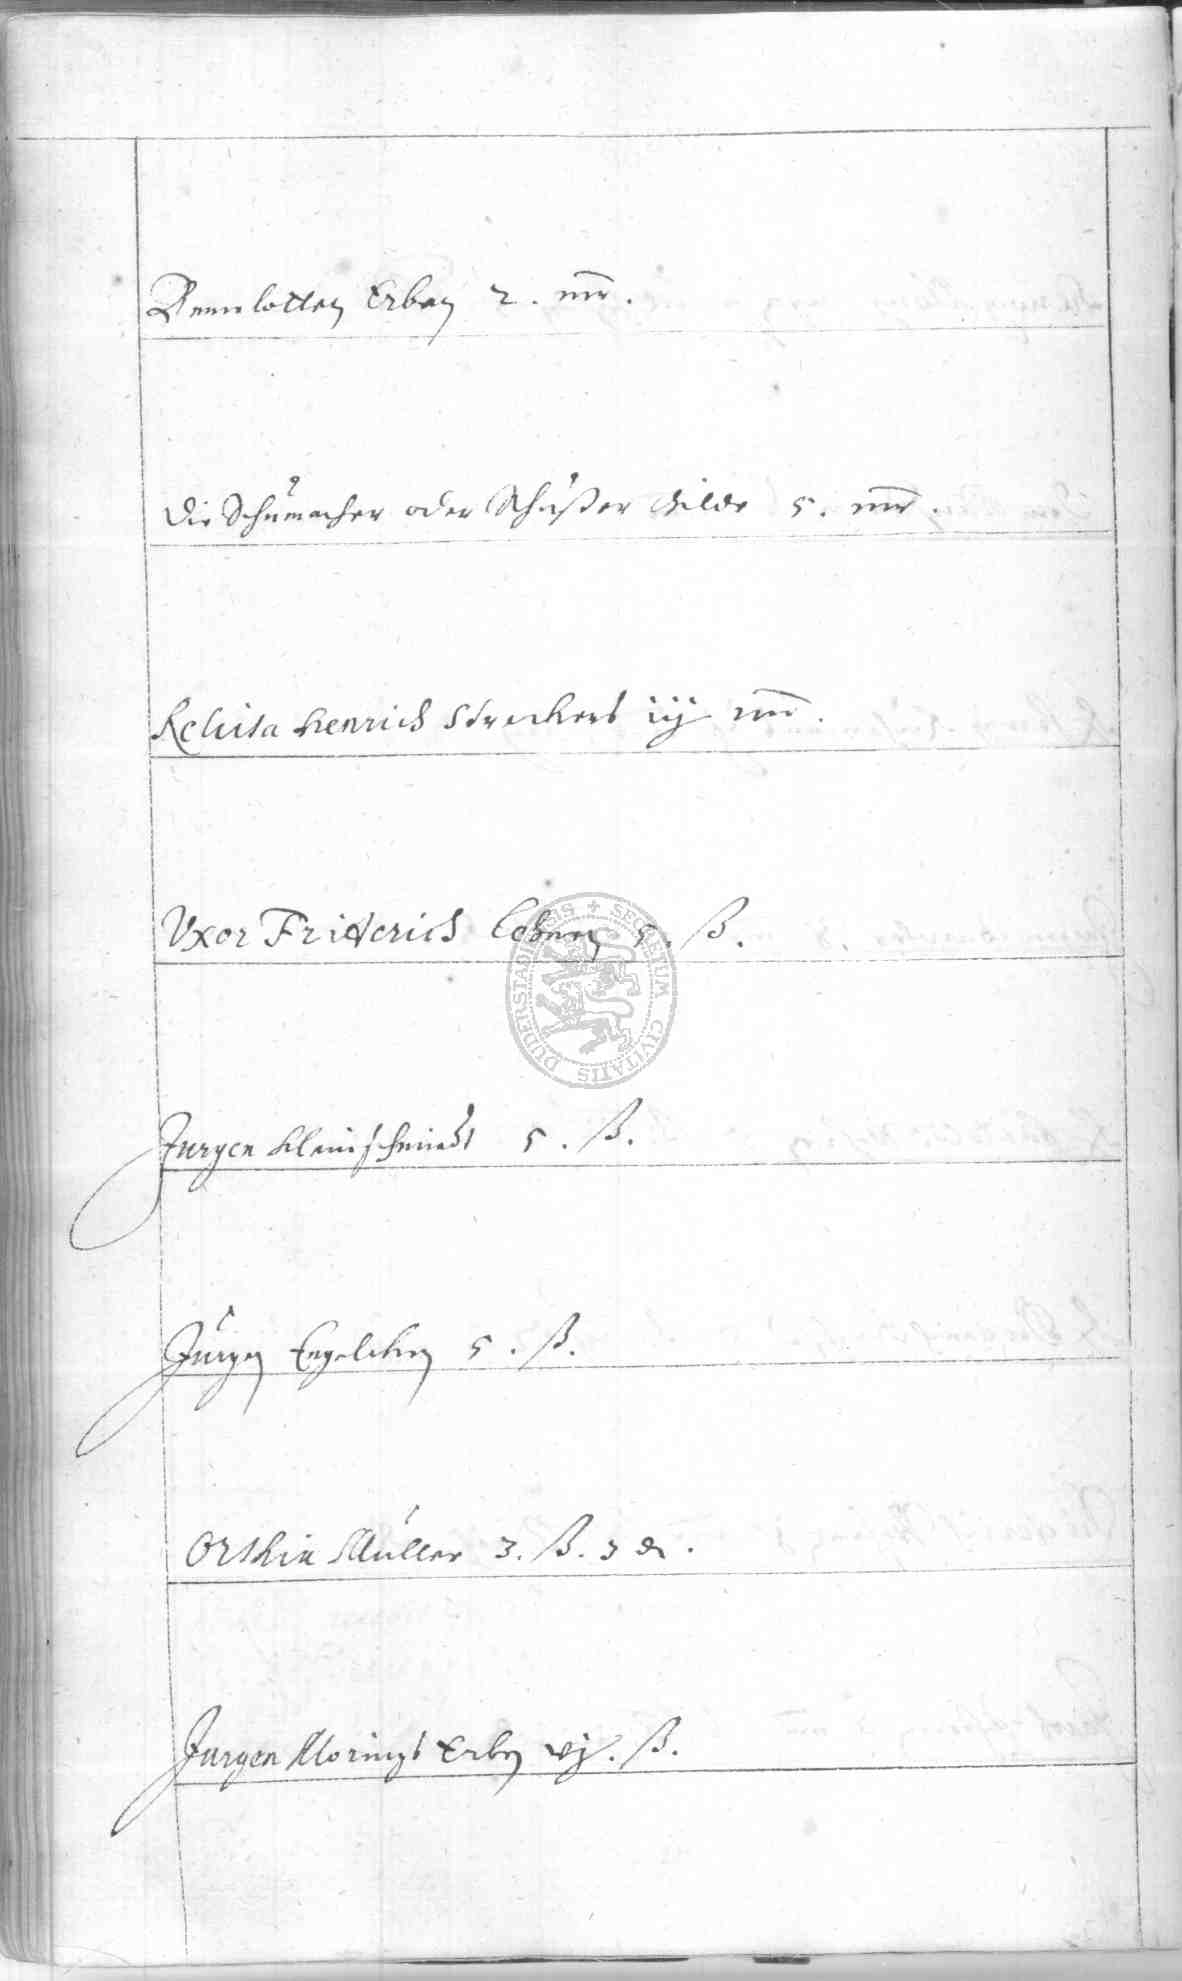 Erben 2. mr.
Die Schumacher oder Schuster Gilde 5. mr.
Relicta Henrich Streckers iij mr.
Vxor Friderich 5. ß.
Jurgen Kleinschmidt 5. ß.
Jürgen Engelcken 5. ß.
Müller 3. ß. 3 d.
Jurgen Morings Erben vj. ß.
SECRETUM CIVITATIS DUDERSTADIENSIS